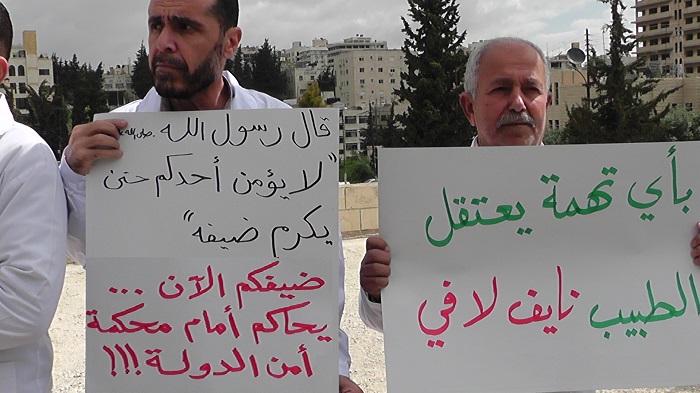 قال رسول الله صلى الله
"لا يؤمن أحدكم حتى
يكرم ضيفه"
ضيفكم الآن ...
يحاكم أمام محكمة
أمن الدولة !!!
بأي تهمة يعتقل
الطبيب نايف لافي